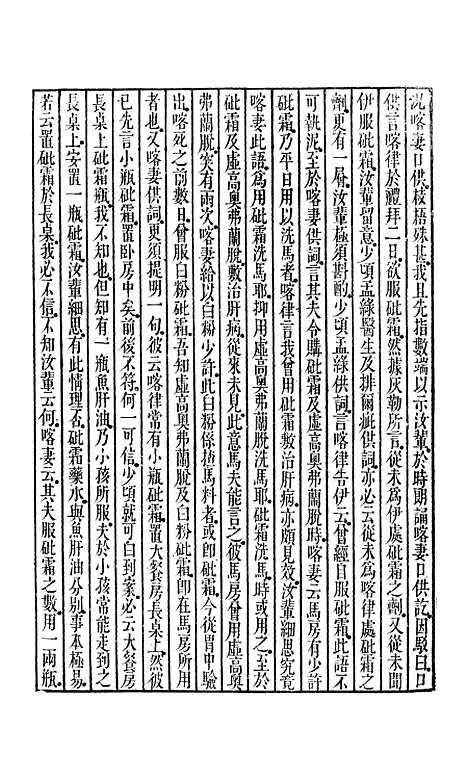 況喀妻口供枝梧殊甚我且先指數端以示汝輩於時期誦喀妻口供訖因駁曰口
供言喀律於禮拜二日欲服砒霜然據灰勒所言從未爲伊處砒霜之劑又從未聞
伊服砒霜汝輩留意少頃孟綠醫生及排爾疵供詞亦必云從未爲喀律處砒霜之
劑更有一層汝輩極須斟酌少頃孟綠供詞言喀律告伊云曾經目服砒霜此語不
可執泥至於喀妻供詞言其夫令購砒霜及虛高奧弗蘭脫時喀妻云馬房有少許
砒霜乃平日用以洗馬者喀律言我曾用砒霜敷治肝病亦頗見效汝輩細思究竟
喀妻此語爲用砒霜洗馬耶抑用虛高奧弗蘭脫洗馬耶砒霜洗馬時或用之至於
砒霜及虛高奧弗蘭脫敷治肝病從來未見此意馬夫能言之彼馬房曾用虛高奧
弗蘭脫突有兩次喀妻給以白粉少許此白粉係揸馬料者或卽砒霜今從胃中驗
出喀死之前數日曾服白粉砒霜吾知虛高奧弗蘭脫及白粉砒霜卽在馬房所用
者也又喀妻供詞更須提明一句彼云喀律常有小瓶砒霜置大餐房長桌上然彼
已先言小瓶砒霜置臥房中矣前後不符何一可信少頃就可白到案必云大餐房
長桌上砒霜瓶我不知也但知有一瓶魚肝油乃小孩所服夫於小孩常能走到之
長桌上安置一瓶砒霜汝輩細思有此情理否砒霜藥水與魚肝油分別事本極易
若云置砒霜於長桌我必不信不知汝輩云何喀妻云其夫服砒霜之數用一兩瓶